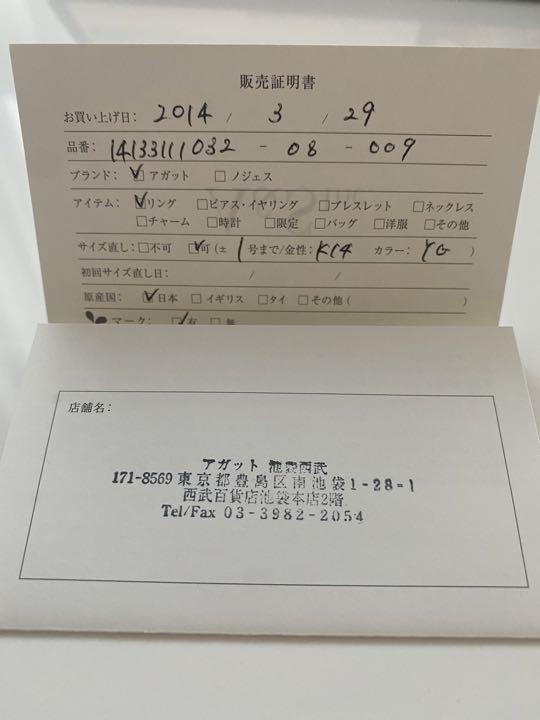 販売証明書
お買い上げ日: 2014 / 3 / 29
品番: 14133111032 - 08 - 009
ブランド: ☑アガット □ノジェス
アイテム: ☑リング □ピアス・イヤリング □ブレスレット □ネックレス
□チャーム □時計 □限定 □バッグ □洋服 □その他
サイズ直し: □不可 ☑可 (± 1号まで/金性: K14 カラー: YG )
初回サイズ直し日: / /
原産国: ☑日本 □イギリス □タイ □その他 ( )
マーク: ☑有 □無
店舗名:
アガット 池袋西武
171-8569 東京都豊島区南池袋1-28-1
西武百貨店池袋本店2階
Tel/Fax 03-3982-2054